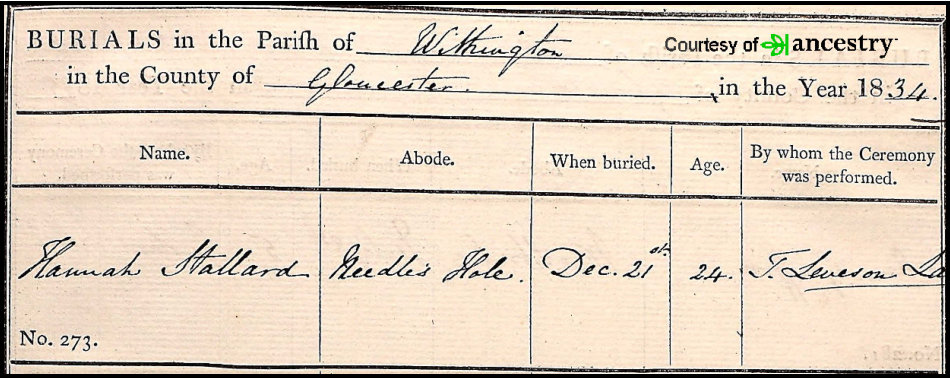 BURIALS in the Pariſh of Withington Courtesy of ancestry
in the County of Gloucester. in the Year 1834.
Name. Abode. When buried. Age. By whom the Ceremony
was performed.
Hannah Stallard Needle's Hole. Dec. 21st. 24. T. Leveson La
No. 273.